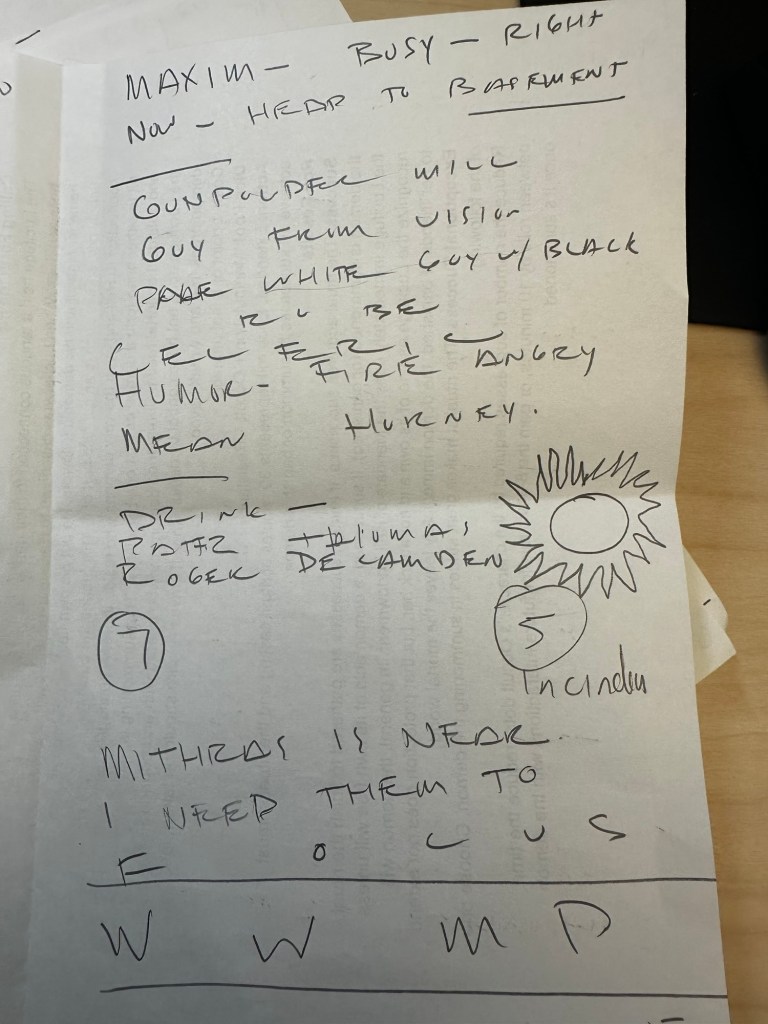 MAXIM - BUSY - RIGHT
NOW - HEAD TO BASEMENT
GUNPOWDER WILL
GUY FROM VISION
PALE WHITE GUY W/ BLACK
ROBE
CELERIC
HUMOR - FIRE ANGRY
MEAN HORNEY.
DRINK -
THOMAS
ROGER DE CAMDEN
7
5
MITHRAS IS NEAR.
I NEED THEM TO
F O C U S
W W M D